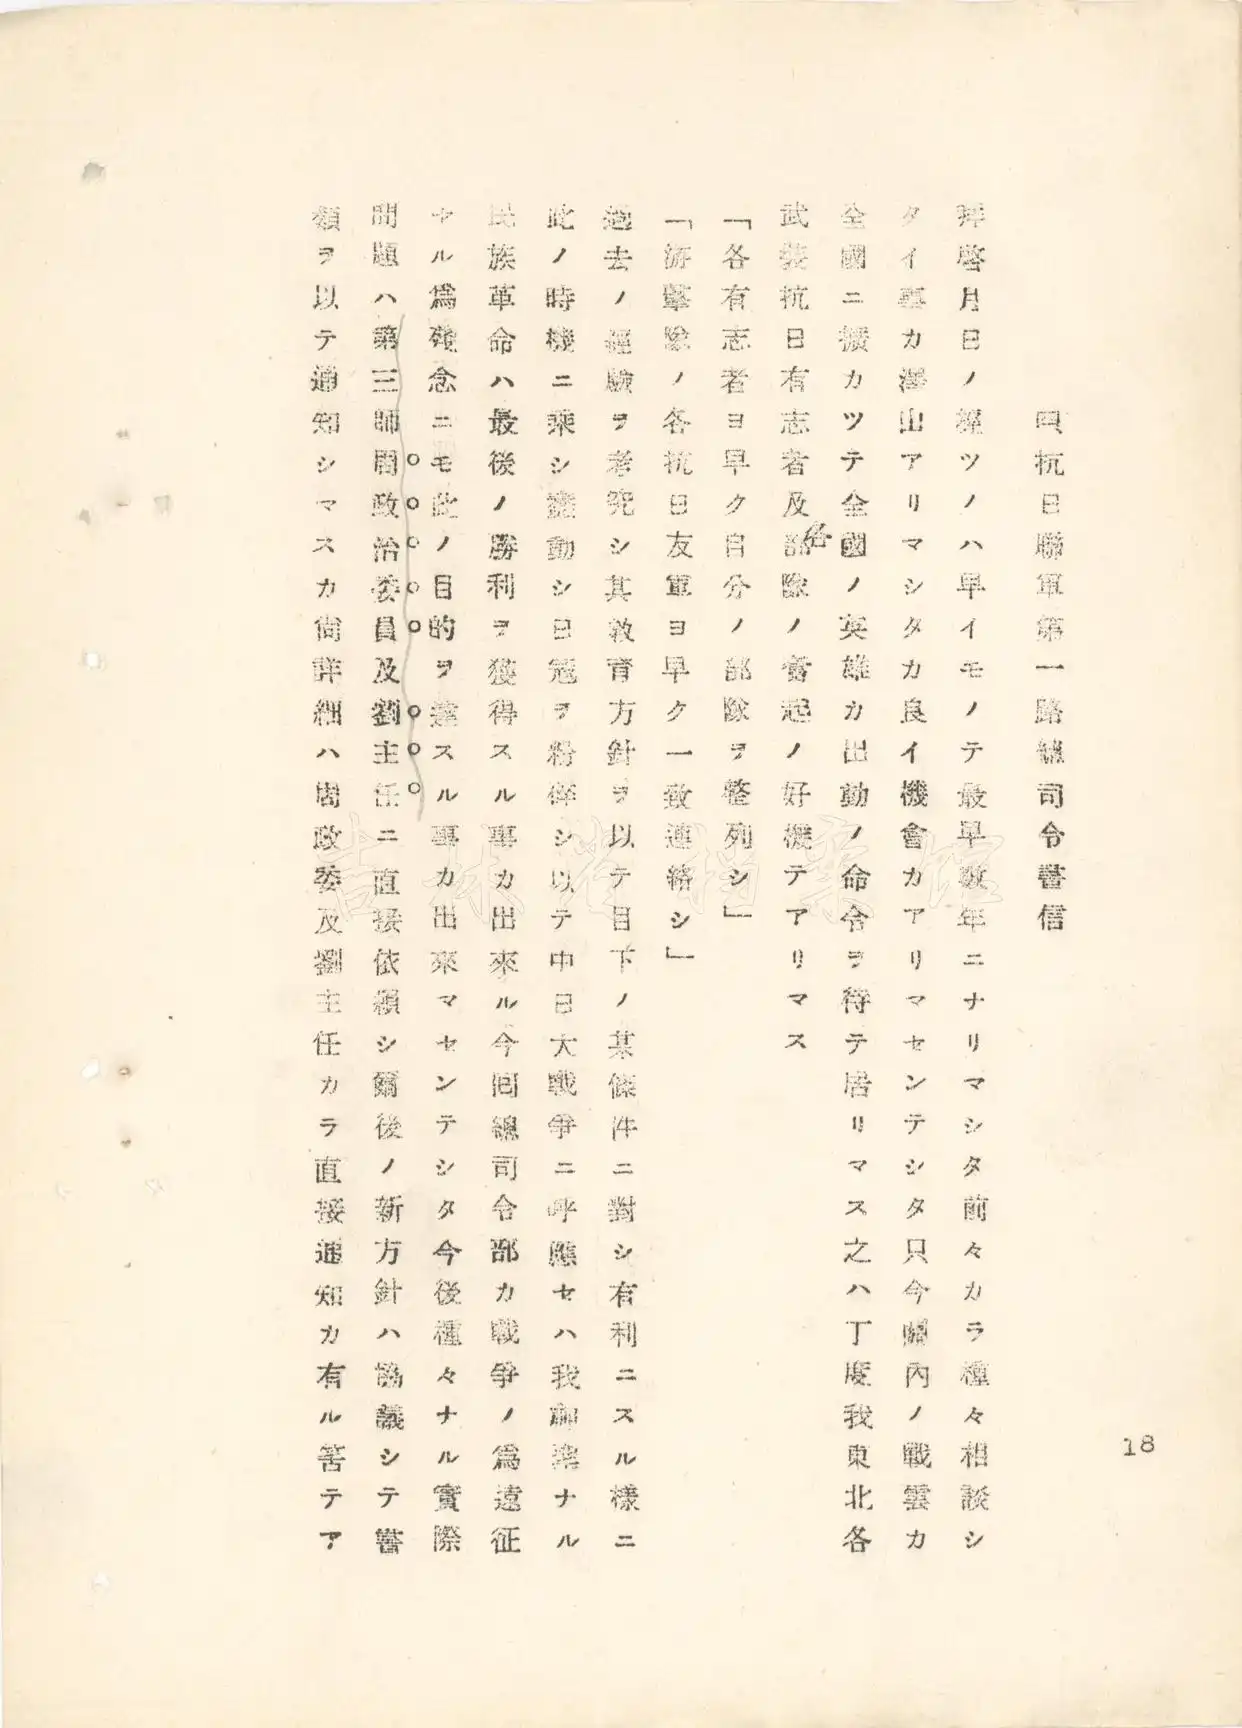 抗日聯軍第一路總司令書信
拜啓月日ノ經ツノハ早イモノテ最早數年ニナリマシタ前々カラ種々相談シ
タイ事カ澤山アリマシタカ良イ機會カアリマセンテシタ只今關內ノ戰雲カ
全國ニ擴カツテ全國ノ英雄カ出動ノ命令ヲ待テ居リマス之ハ丁度我東北各
武裝抗日有志者及各部隊ノ奮起ノ好機テアリマス
「各有志者ヨ早ク自分ノ部隊ヲ整列シ」
「游擊隊ノ各抗日友軍ヨ早ク一致連絡シ」
過去ノ經驗ヲ考究シ其敎育方針ヲ以テ目下ノ某條件ニ對シ有利ニスル樣ニ
此ノ時機ニ乘シ蠢動シ日寇ヲ粉碎シ以テ中日大戰爭ニ呼應セハ我神聖ナル
民族革命ハ最後ノ勝利ヲ獲得スル事カ出來ル今回總司令部カ戰爭ノ爲遠征
ヤル爲殘念ニモ此ノ目的ヲ達スル事カ出來マセンテシタ今後種々ナル實際
問題ハ第三師周政治委員及劉主任ニ直接依賴シ爾後ノ新方針ハ協議シテ書
類ヲ以テ通知シマスカ尙詳細ハ周政委及劉主任カラ直接通知カ有ル筈テア
18
吉林省档案馆